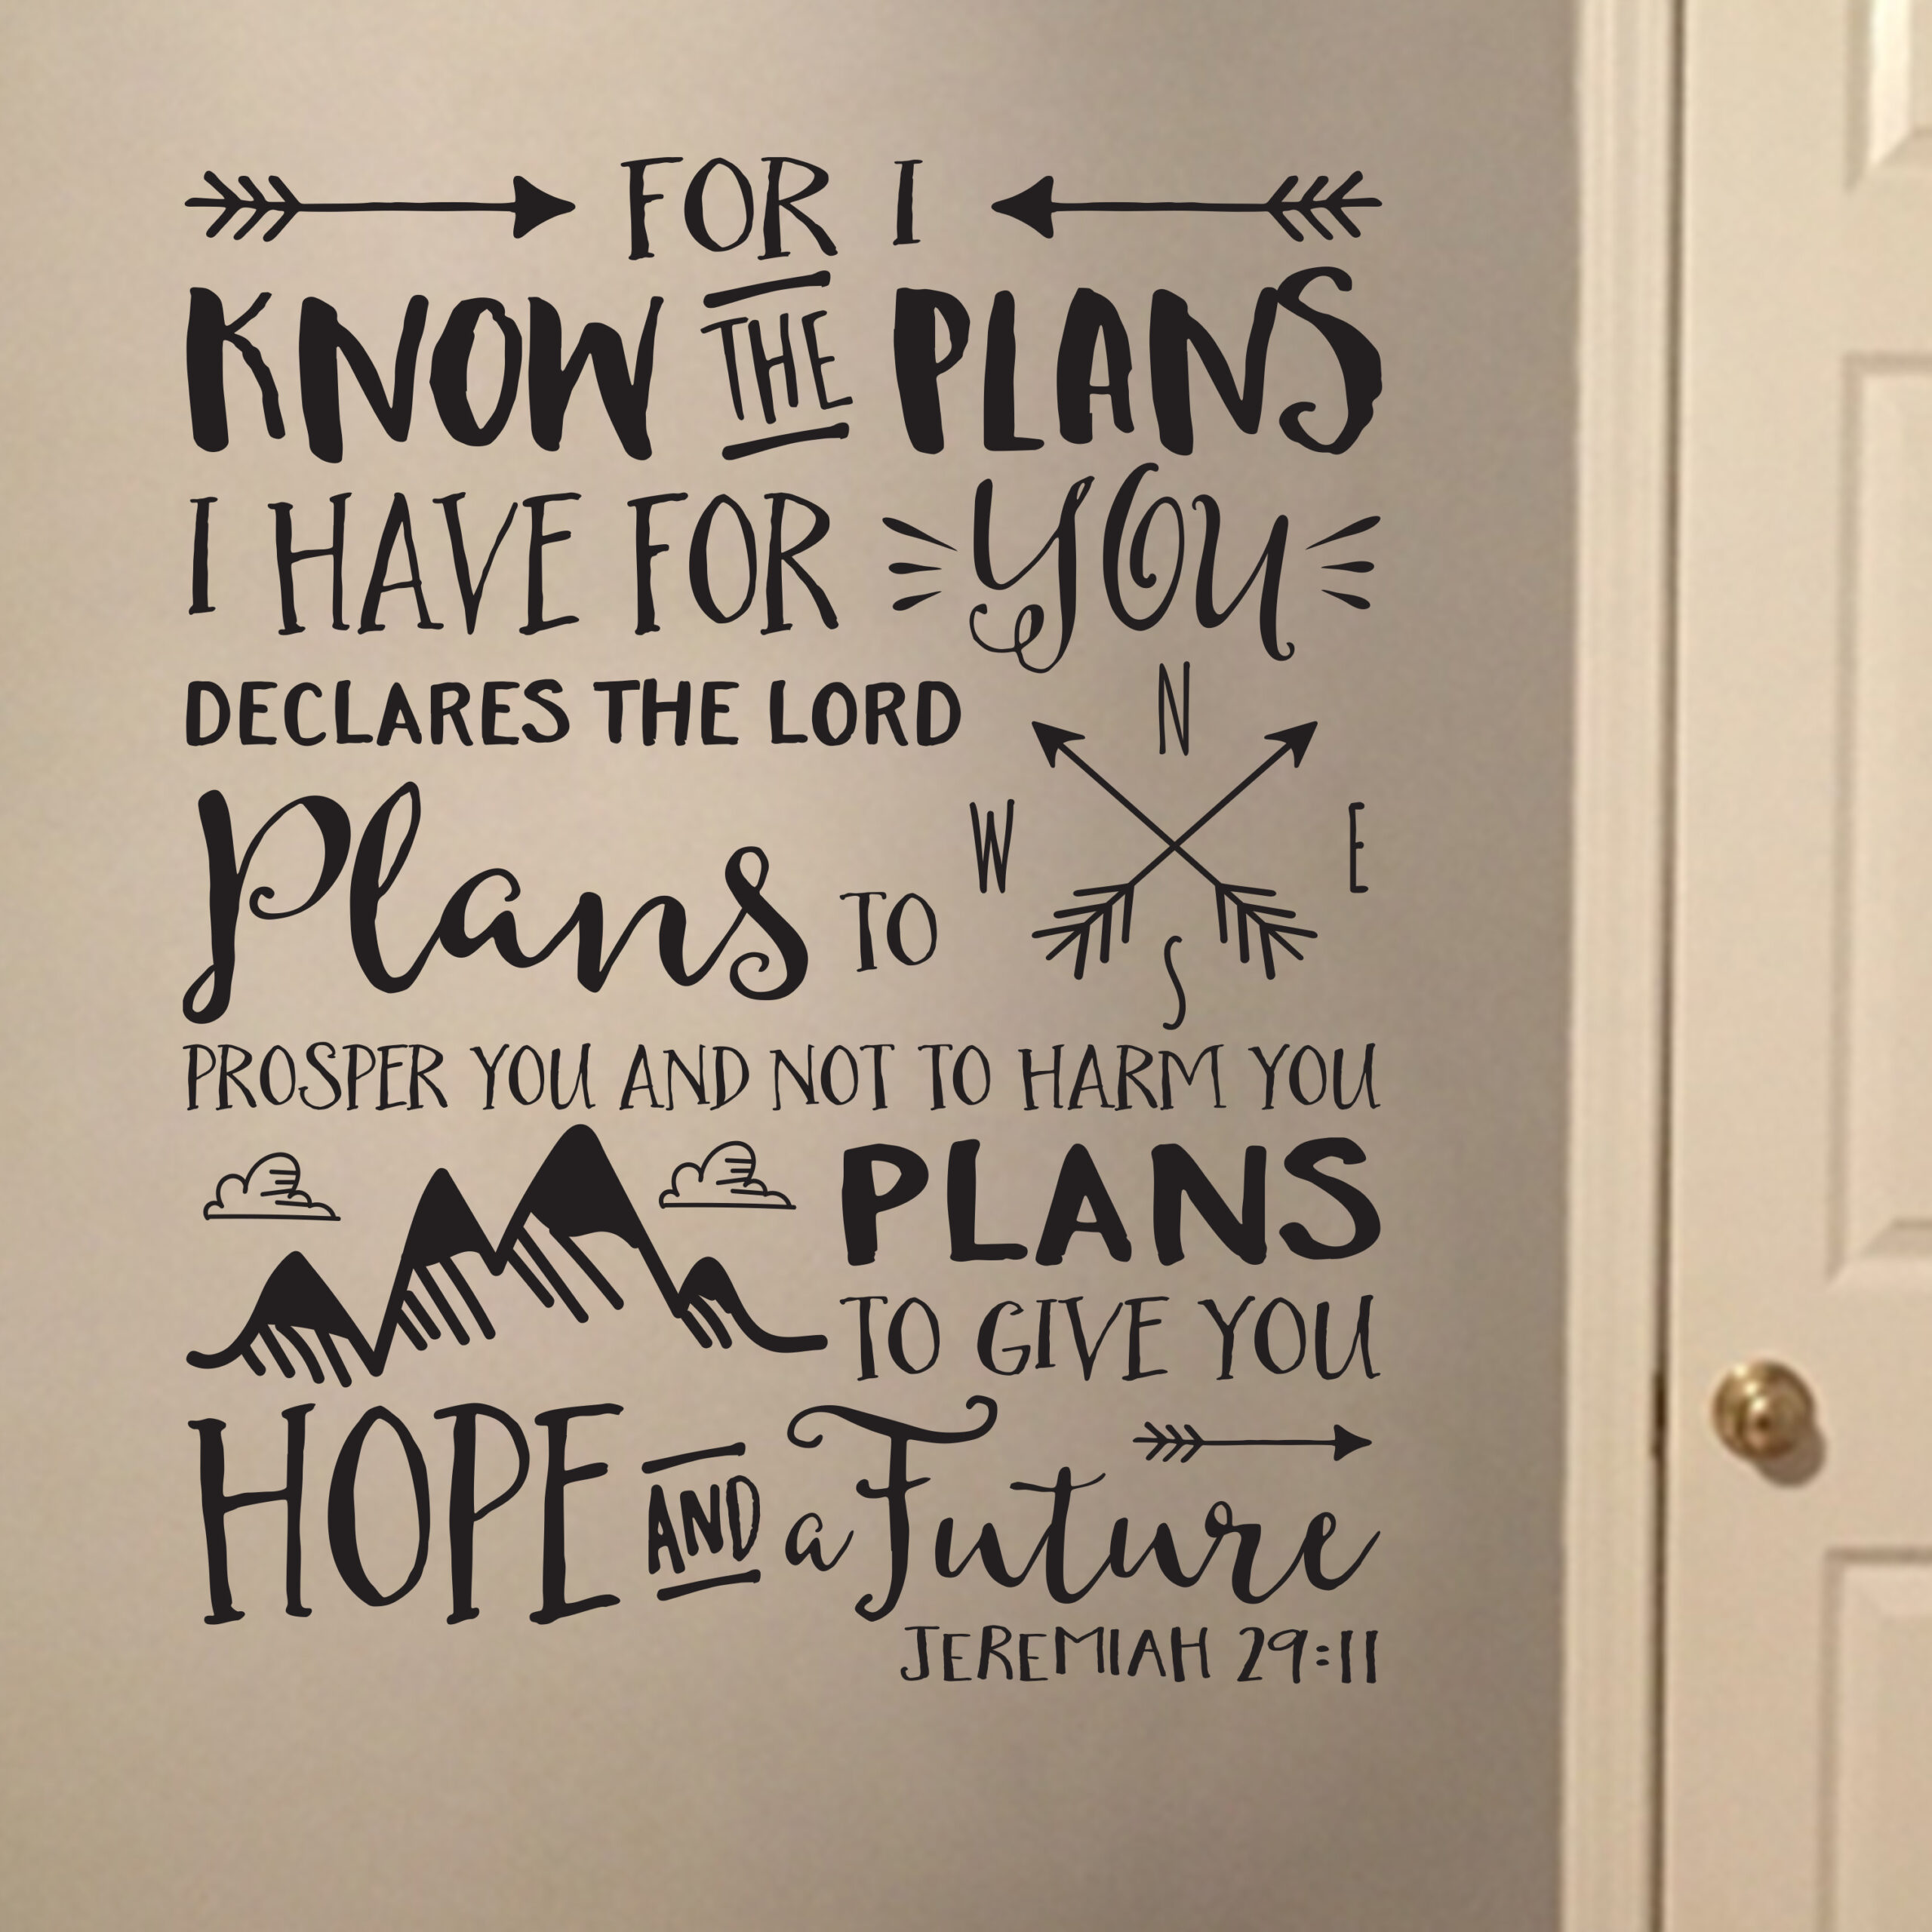 FOR I
KNOW THE PLANS
I HAVE FOR YOU
DECLARES THE LORD
N
Plans TO
W E
S
PROSPER YOU AND NOT TO HARM YOU
PLANS
TO GIVE YOU
HOPE AND a Future
JEREMIAH 29:11